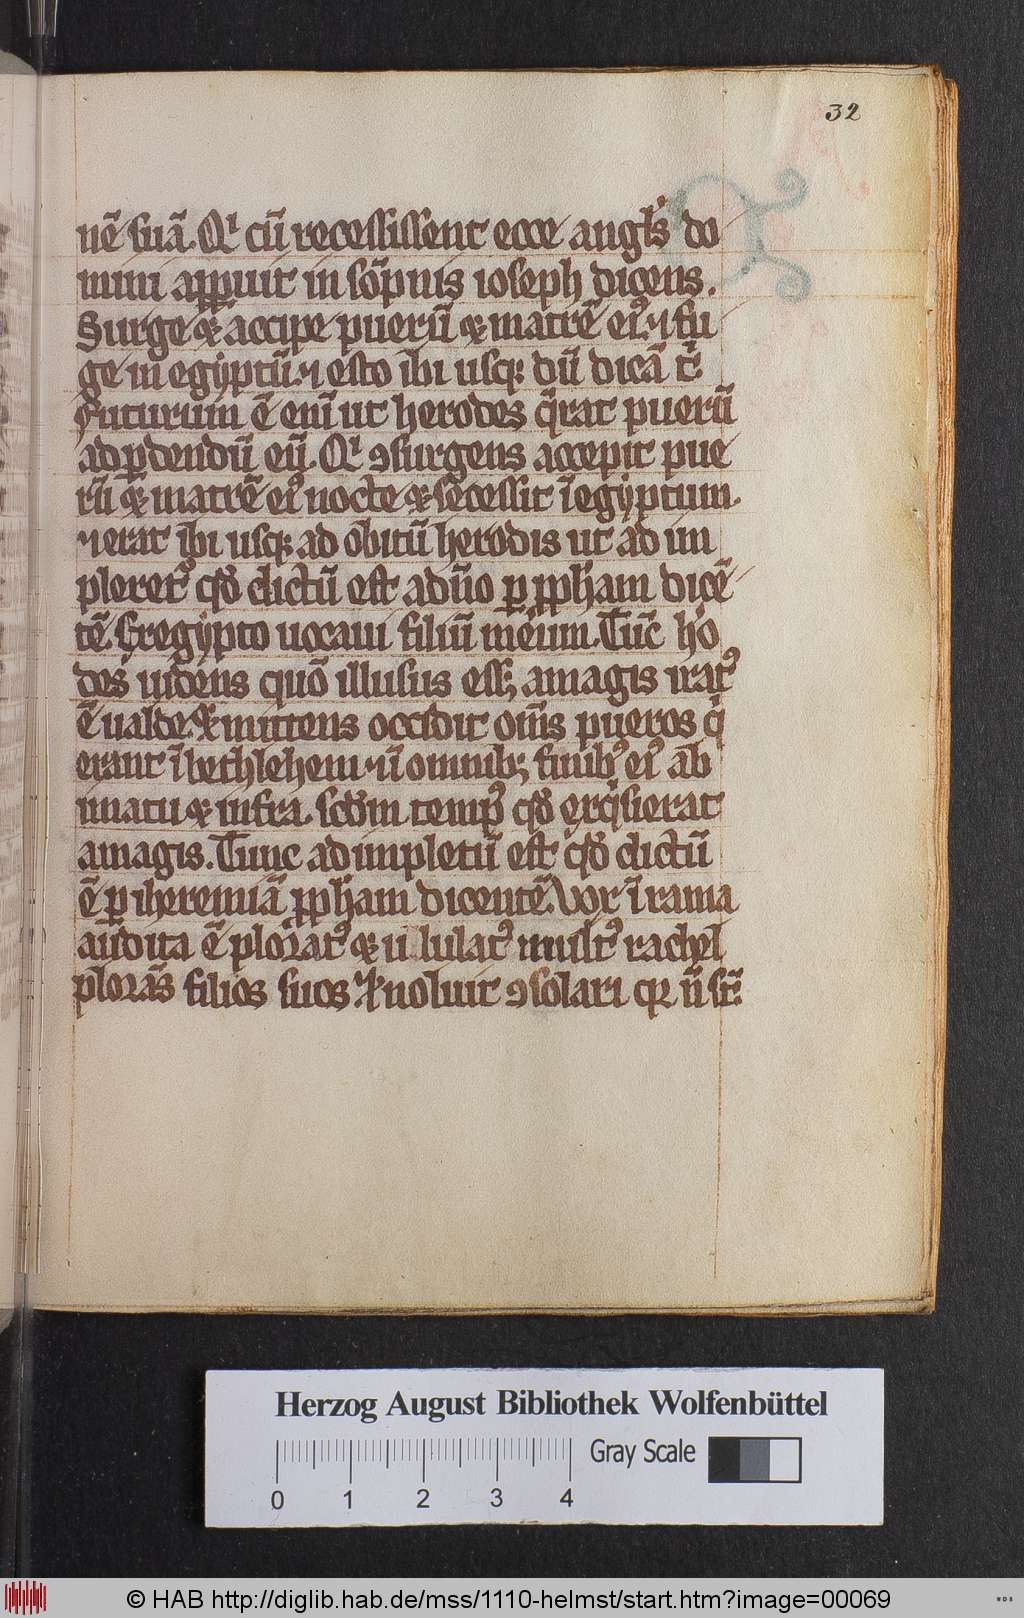 32
nē suā. Qi cū recessissent ecce angl's do
mini apparuit in sōpnis ioseph dicens.
Surge & accipe puerū & matrē eiꝰ ⁊ fu
ge in egyptū. ⁊ esto ibi usqꝫ dū dicā t'.
Futurum ē eni ut herodes q̄rat puerū
ad ꝑdendū eū. Qi ꝯsurgens accepit pue
rū & matrē eiꝰ nocte & secessit ī egyptum.
⁊ erat ibi usqꝫ ad obitū herodis ut ad im
pleretꝰ qd' dictū est a dn̄o ꝑ ꝓph'am dicē
tē. Ex egypto uocaui filiū meum. Tūc h'o
des uidens quō illusus essꝫ a magis iratꝰ
ē ualde. & mittens occidit om̄s pueros q'
erant ī bethlehem ⁊ ī omnibꝫ finibꝰ eiꝰ ab
imatu & infra. scd'm tempꝰ qd' exq'sierat
a magis. Tunc adimpletū est qd' dictū
ē ꝑ iheremiā ꝓph'am dicentē. Vox ī rama
audita ē ploratꝰ & ululatꝰ multꝰ rachel
plorās filios suos. & noluit ꝯsolari qꝛ n̄ st̄.
Herzog August Bibliothek Wolfenbüttel
Gray Scale
0 1 2 3 4
© HAB http://diglib.hab.de/mss/1110-helmst/start.htm?image=00069